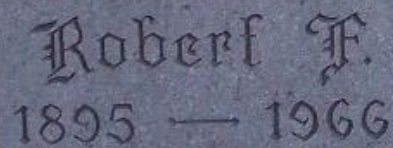 Robert F.
1895 — 1966